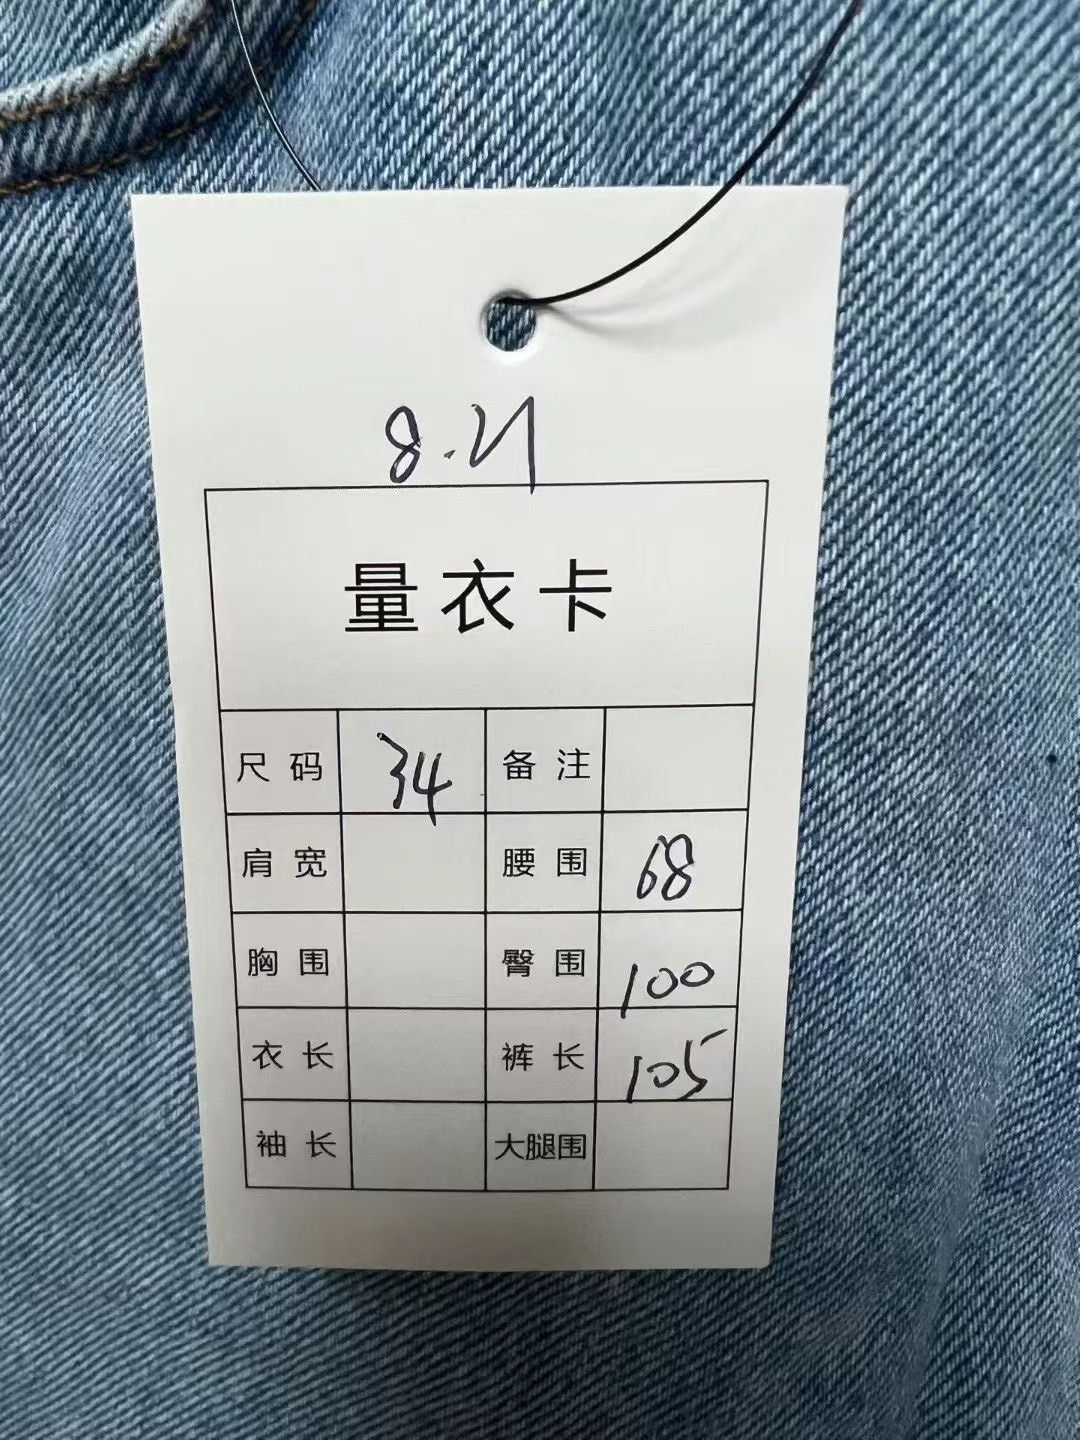 8.21
量衣卡
尺码 34 备注
肩宽 腰围 68
胸围 臀围 100
衣长 裤长 105
袖长 大腿围